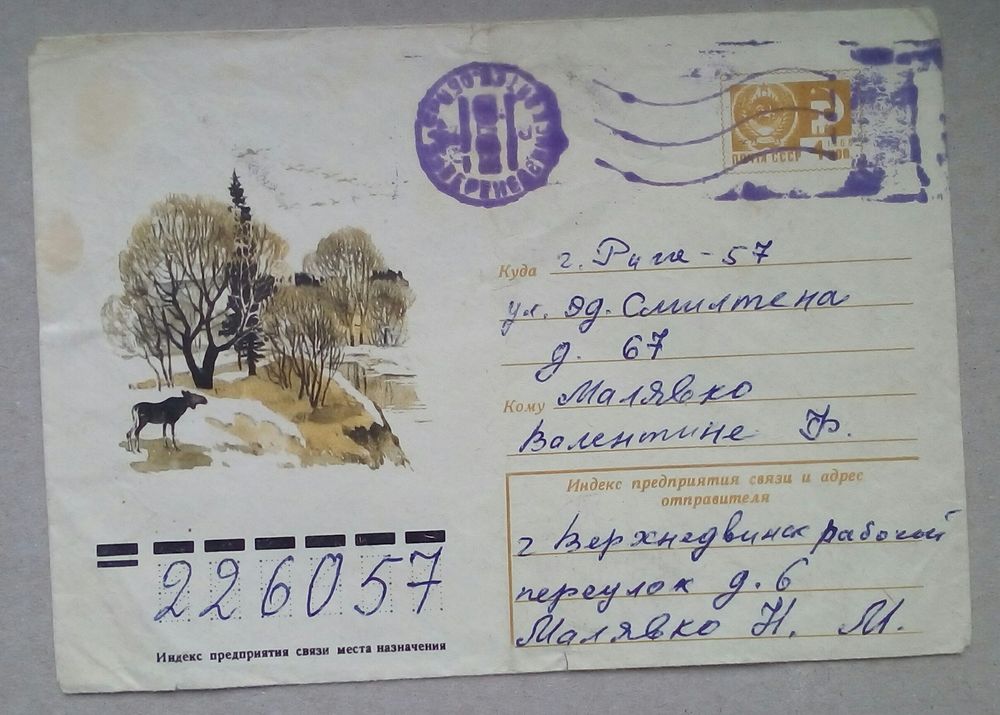 ПОЧТА СССР 4 КОП
1966
Куда г. Рига-57
ул. Эд. Смилтена
д. 67
Кому Малявко
Валентине Ф.
Индекс предприятия связи и адрес
отправителя
г Верхнедвинск рабочий
переулок д. 6
Малявко Н. М.
226057
Индекс предприятия связи места назначения